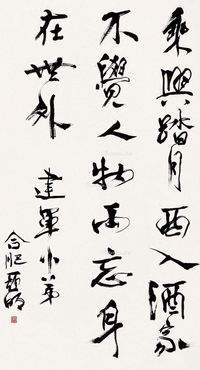 乘興踏月西入酒家
不覺人物兩忘身
在世外 建軍小弟
合肥 亞明